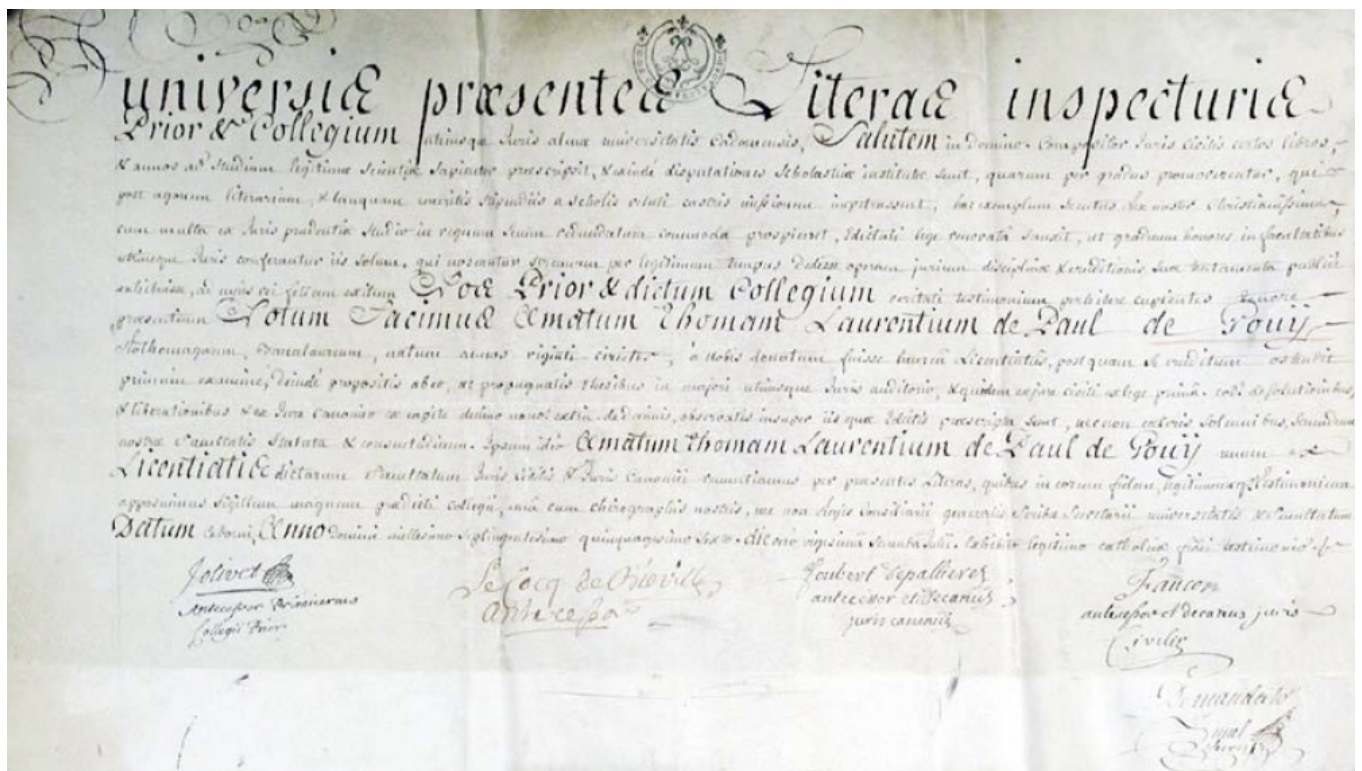 universis præsentes Literas inspecturis
Prior & Collegium utriusque Juris almæ universitatis Cadomensis, Salutem in Domino. Compositor Juris Civilis certos libros,
& annos ad studium legitimæ scientiæ sapienter præscripsit, & exindè disputationes scholasticæ institutæ sunt, quarum per gradus promoverentur, qui
post agonem literarium, & tanquam emeritis stipendiis a scholis veluti castris missionem impetrassent, hoc exemplum secutus Rex noster Christianissimus,
cum multa ex Juris prudentiæ studio in regnum suum redundatura commoda prospiceret, Edictali lege renovatâ sanxit, ut graduum honores in facultatibus
utriusque Juris conferantur iis solum, qui noscantur per legitimum tempus Dedisse operam jurium disciplinæ & eruditionis suæ publicè
ac ejus rei felicem exitum Nos Prior & dictum Collegium veritati testimonium perhibere cupientes tenore
præsentium Notum Facimus Amatum Thomam Laurentium de Paul de Pouÿ
Rothomagæum, Baccalaureum, natum annos viginti circiter, à nobis donatum fuisse laureâ Licentiatûs, postquam se eruditum ostendit
privato examine, deindè propositis ab eo, ac propugnatis thesibus in majori utriusque Juris auditorio, & quidem ex jure civili ex lege primâ cod. de solutionibus,
& liberationibus & ex Jure Canonico ex capite decimo nono extra. de, observatis insuper iis quæ Edictis præscripta sunt, nec non cæteris solemnibus, secundum
nostræ Facultatis Statuta & consuetudinem. Ipsum ideo Amatum Thomam Laurentium de Paul de Pouÿ unum ex
Licentiatis dictarum Facultatum Juris Civilis & Juris Canonici renuntiamus per præsentes Literas, quibus in eorum fidem, legitimumq; Testimonium
apposuimus sigillum magnum prædicti collegii, unà cum chirographis nostris, nec non Regis Consiliarii generalis Scribæ Secretarii universitatis & Facultatum
Datum Cadomi, Anno Domini millesimo septingentesimo quinquagesimo sexto. die verò vigesimâ secundâ Julii. Exhibito legitimo catholicæ fidei testimonio.
Jolivet
Antecessor Primarius
Collegii Prior
Le Cocq de Biéville
Antecessor
Loubert Depallieres
antecessor et decanus
juris canonici
Françon
antecessor et decanus juris
Civilis
De mandato